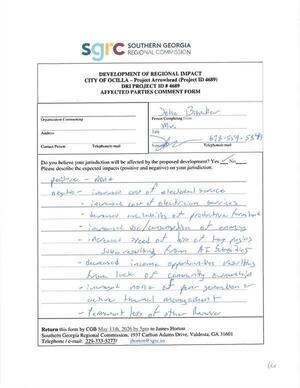 sgrc SOUTHERN GEORGIA
REGIONAL COMMISSION
DEVELOPMENT OF REGIONAL IMPACT
CITY OF OCILLA – Project Arrowhead (Project ID 4689)
DRI PROJECT ID # 4689
AFFECTED PARTIES COMMENT FORM
Organization Commenting
John
Person Completing Form
Mr.
Address
Title
Contact Person Telephone/e-mail
Signature Telephone/e-mail
Do you believe your jurisdiction will be affected by the proposed development? Yes ✓ No
Please describe the expected impacts (positive and negative) on your jurisdiction.
positive - none
negative - increased cost of electrical service
- increased cost of electrician services
- decreased availability of productive farmland
- increased use/consumption of energy
- increased need of loss of tax paying
jobs resulting from AI
- decreased income opportunities resulting
from lack of community
- increased noise of power generation &
active thermal management
- Permanent loss of other
Return this form by COB May 11th, 2026 by 5pm to James Horton
Southern Georgia Regional Commission, 1937 Carlton Adams Drive, Valdosta, GA 31601
Telephone / e-mail: 229-333-5277/ jhorton@sgrc.us